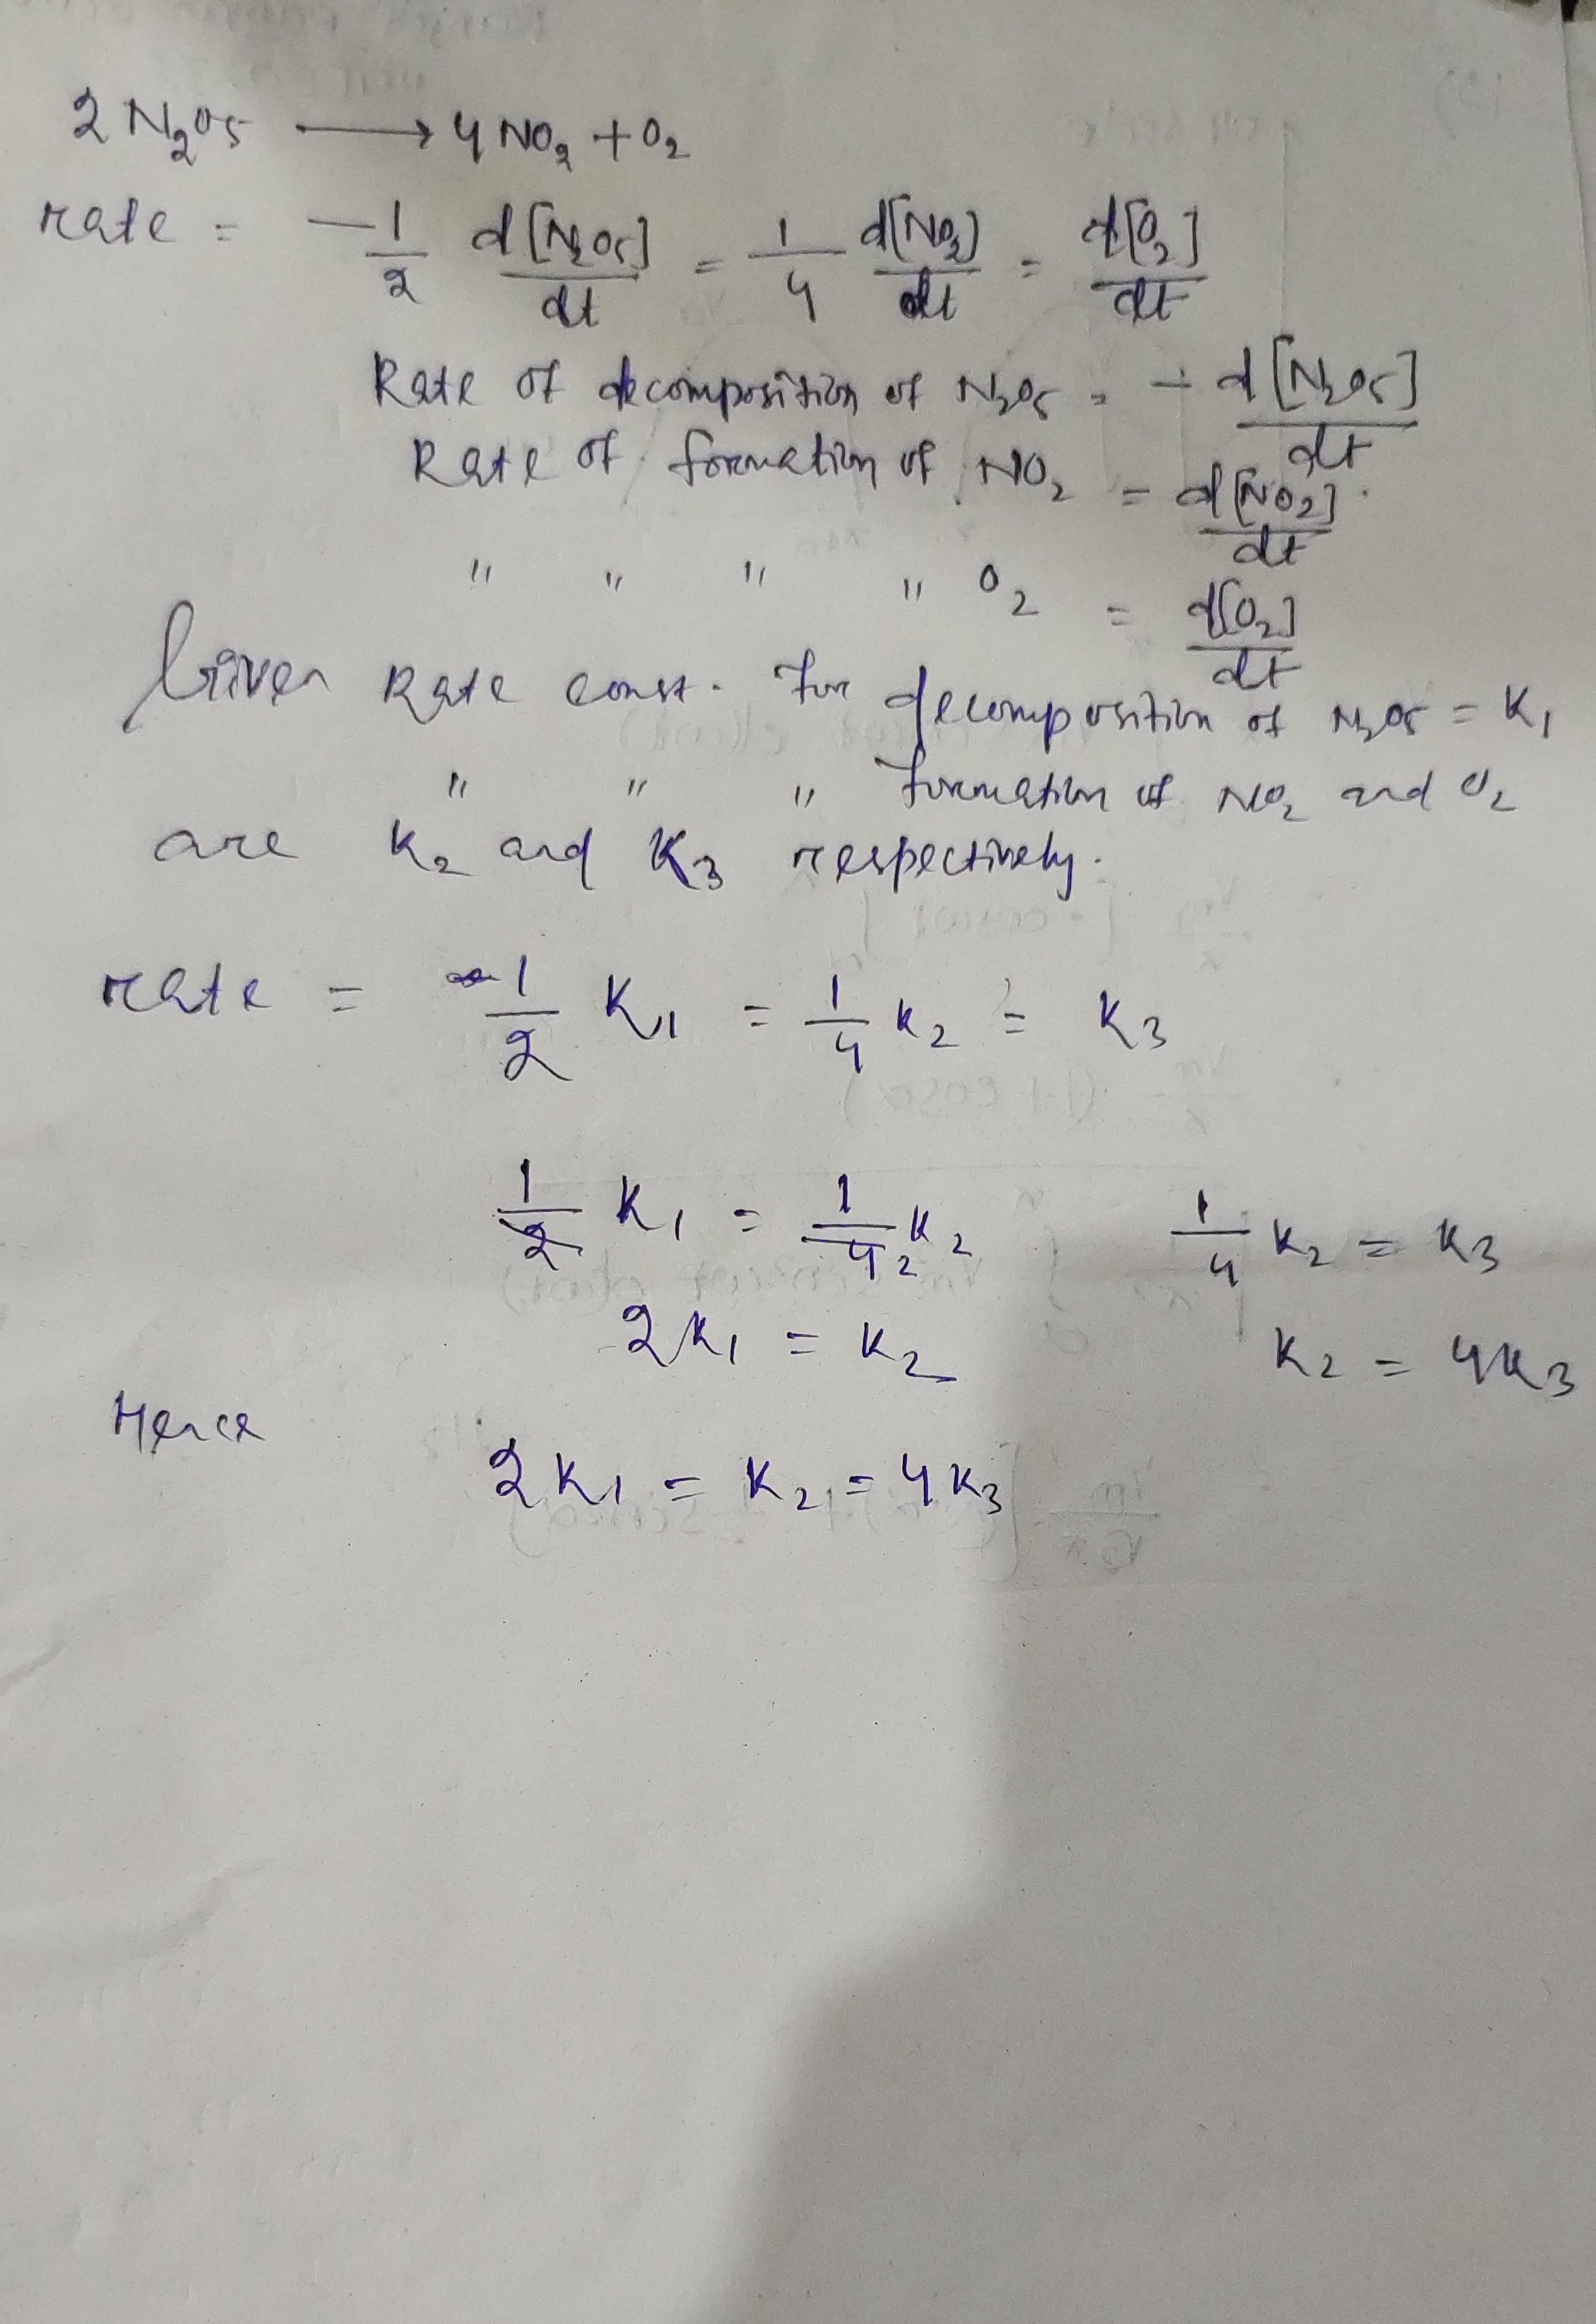 2 N₂O₅ ⟶ 4 NO₂ + O₂
rate = -1/2 d[N₂O₅]/dt = 1/4 d[NO₂]/dt = d[O₂]/dt
Rate of decomposition of N₂O₅ = - d[N₂O₅]/dt
Rate of formation of NO₂ = d[NO₂]/dt
" " " " O₂ = d[O₂]/dt
Given Rate const. for decomposition of N₂O₅ = K₁
" " " formation of NO₂ and O₂
are K₂ and K₃ respectively.
rate = 1/2 K₁ = 1/4 K₂ = K₃
1/2 K₁ = 1/4₂ K₂ 1/4 K₂ = K₃
2K₁ = K₂ K₂ = 4K₃
Hence
2K₁ = K₂ = 4K₃